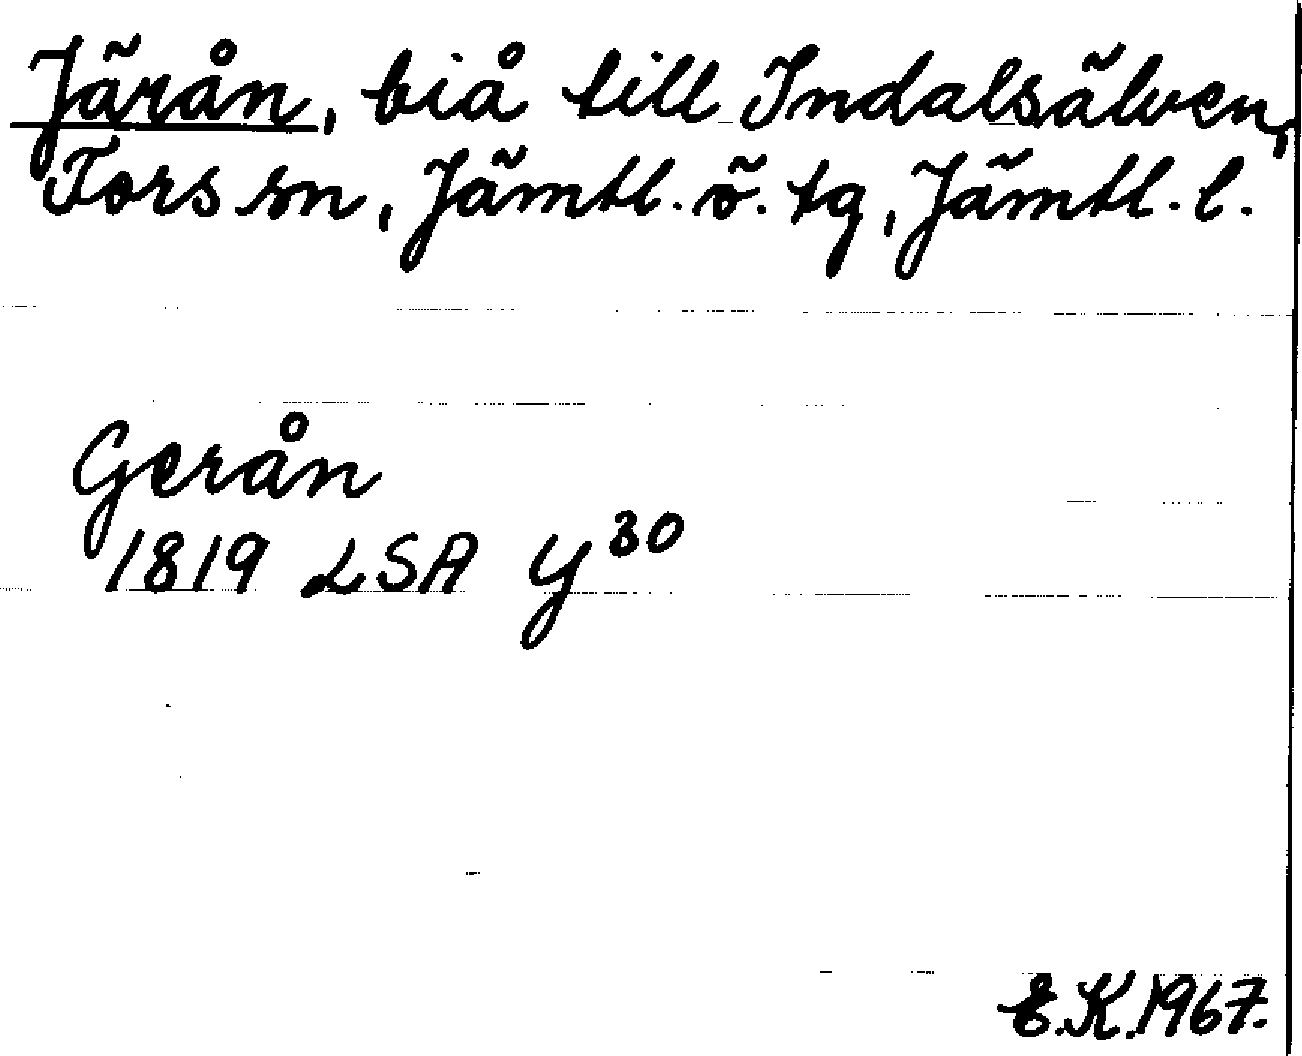 Järån, biå till Indalsälven,
Fors sn, Jämtl. ö. tg, Jämtl. l.
Gerån
1819 LSA Y30
E.K. 1967.